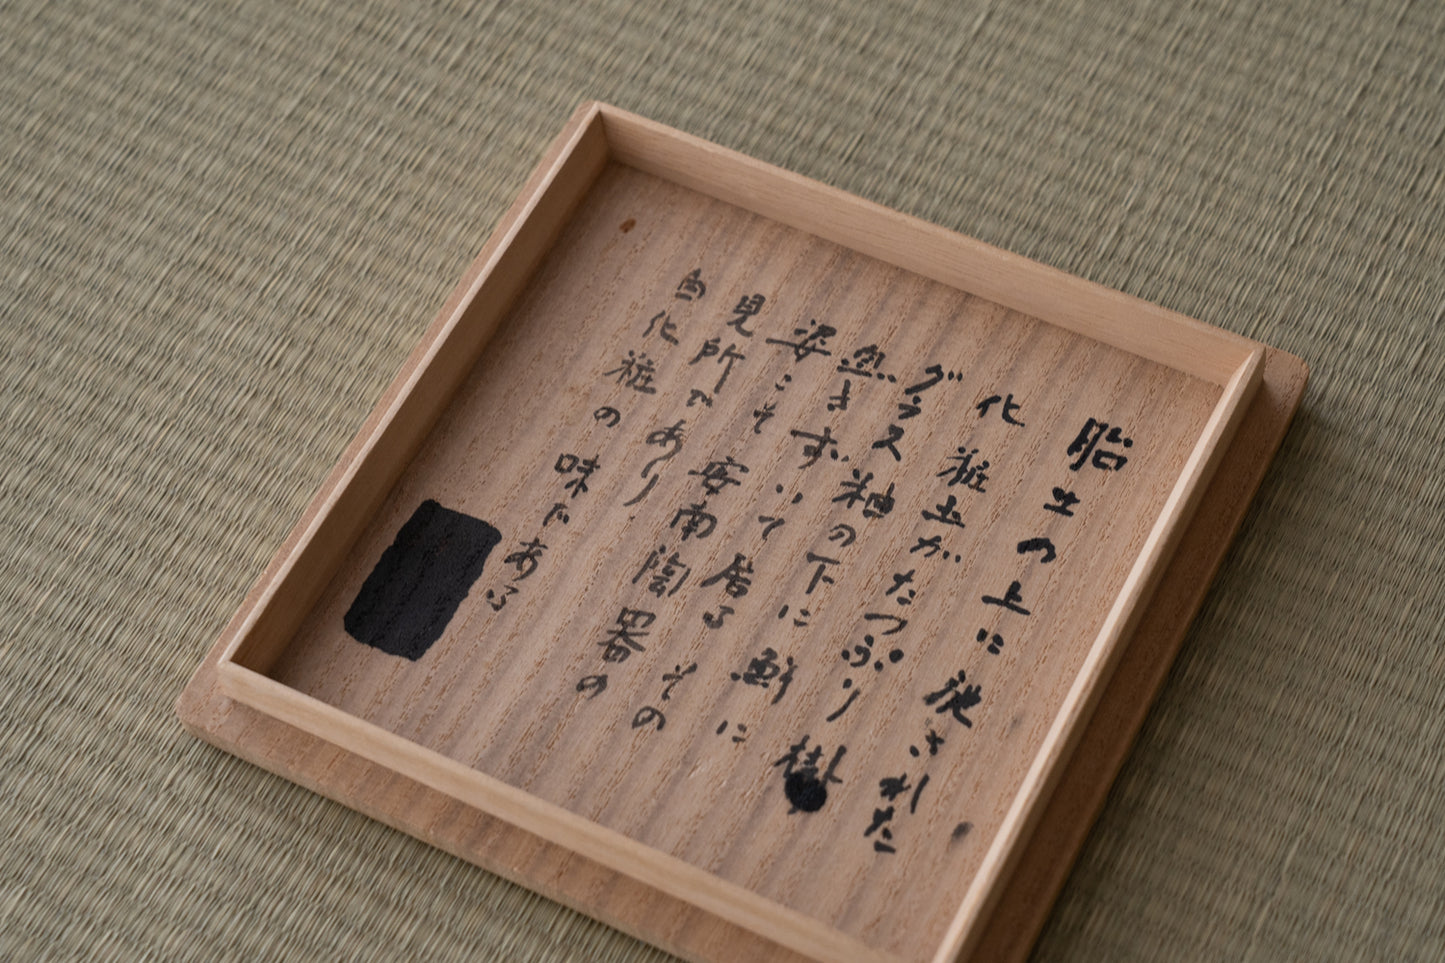 胎土の上に施された
化粧土がたつぷり掛
グラス釉の下に鮮に
息きずいて居るその
姿こそ安南陶器の
見所であり
白化粧の味である